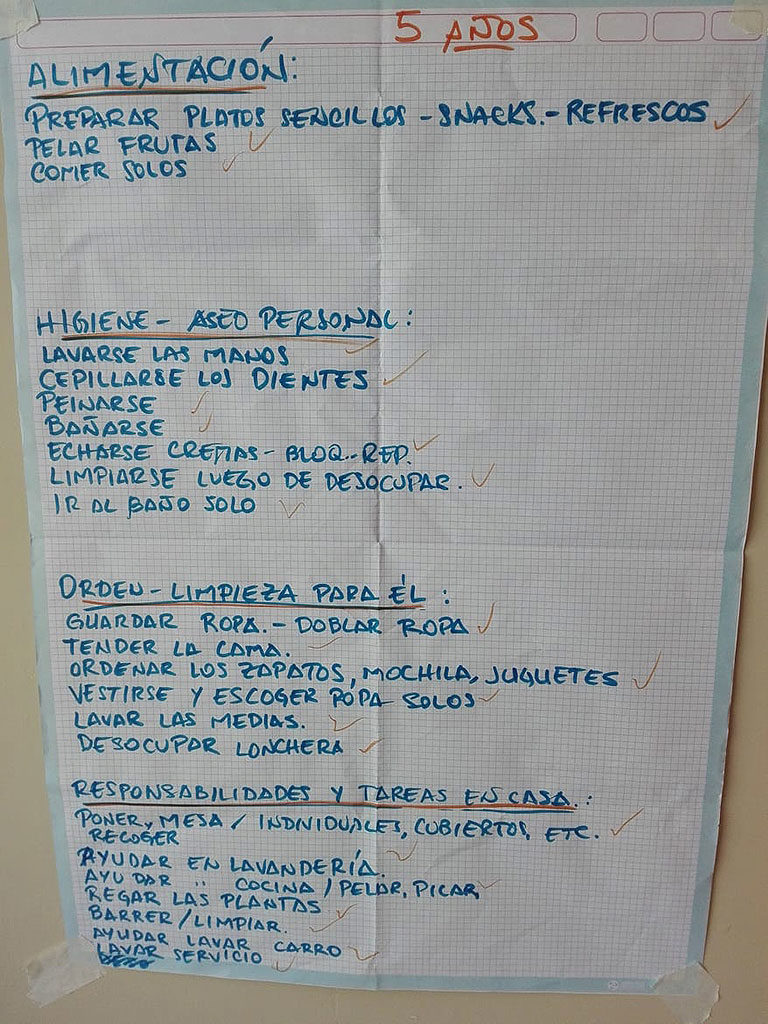 5 AÑOS
ALIMENTACIÓN:
PREPARAR PLATOS SENCILLOS - SNACKS. - REFRESCOS
PELAR FRUTAS
COMER SOLOS
HIGIENE - ASEO PERSONAL:
LAVARSE LAS MANOS
CEPILLARSE LOS DIENTES
PEINARSE
BAÑARSE
ECHARSE CREMAS - BLOQ. - REP.
LIMPIARSE LUEGO DE DESOCUPAR.
IR AL BAÑO SOLO
ORDEN - LIMPIEZA PARA ÉL:
GUARDAR ROPA. - DOBLAR ROPA
TENDER LA CAMA.
ORDENAR LOS ZAPATOS, MOCHILA, JUGUETES
VESTIRSE Y ESCOGER ROPA SOLOS
LAVAR LAS MEDIAS.
DESOCUPAR LONCHERA
RESPONSABILIDADES Y TAREAS EN CASA.:
PONER, MESA / INDIVIDUALES, CUBIERTOS, ETC.
RECOGER
AYUDAR EN LAVANDERÍA.
AYUDAR " COCINA / PELAR, PICAR
REGAR LAS PLANTAS
BARRER / LIMPIAR.
AYUDAR LAVAR CARRO
LAVAR SERVICIO